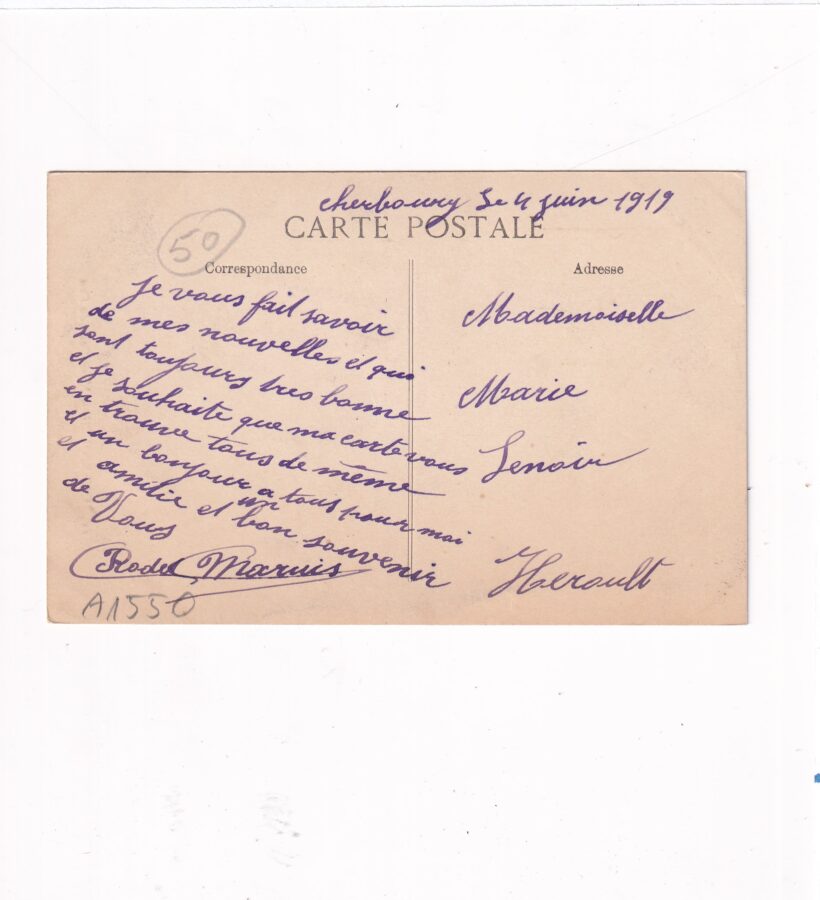 cherbourg le 4 juin 1919
CARTE POSTALE
50
Correspondance
Adresse
Je vous fait savoir
de mes nouvelles et qui
sont toujours tres bonne
et je souhaite que ma carte vous
en trouve tous de même
et un bonjour a tous pour moi
et amitie et un bon souvenir
de Vous
Marius
A1550
Mademoiselle
Marie
Lenoir
Herault